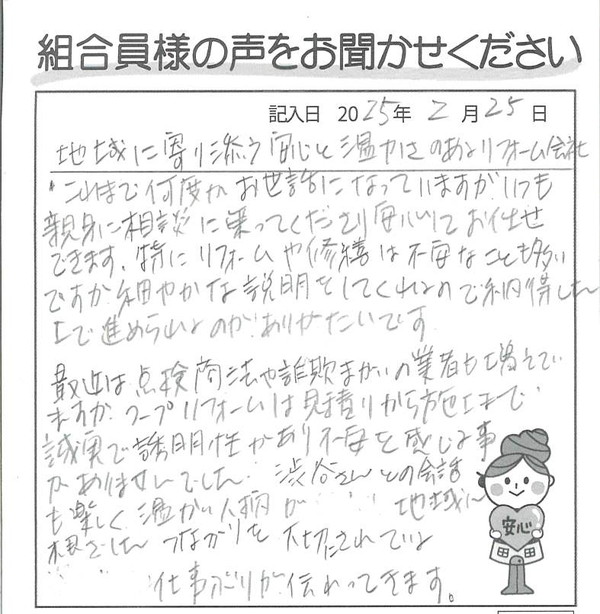 組合員様の声をお聞かせください
記入日 2025年 2月25日
地域に寄り添う安心と温かさのあるリフォーム会社
これまで何度かお世話になっていますがいつも
親身に相談に乗ってくださり安心してお任せ
できます。特にリフォームや修繕は不安なことも多い
ですが細やかな説明をしてくれるので納得した
上で進められるのがありがたいです
最近は点検商法や詐欺まがいの業者も増えてい
ますが コープリフォームは見積りから施工まで
誠実で 透明性があり不安を感じる事
がありませんでした。渋谷さんとの会話
も楽しく温かい人柄が 地域に
根ざした つながりを 大切にされている
仕事ぶりが伝わってきます。
安心